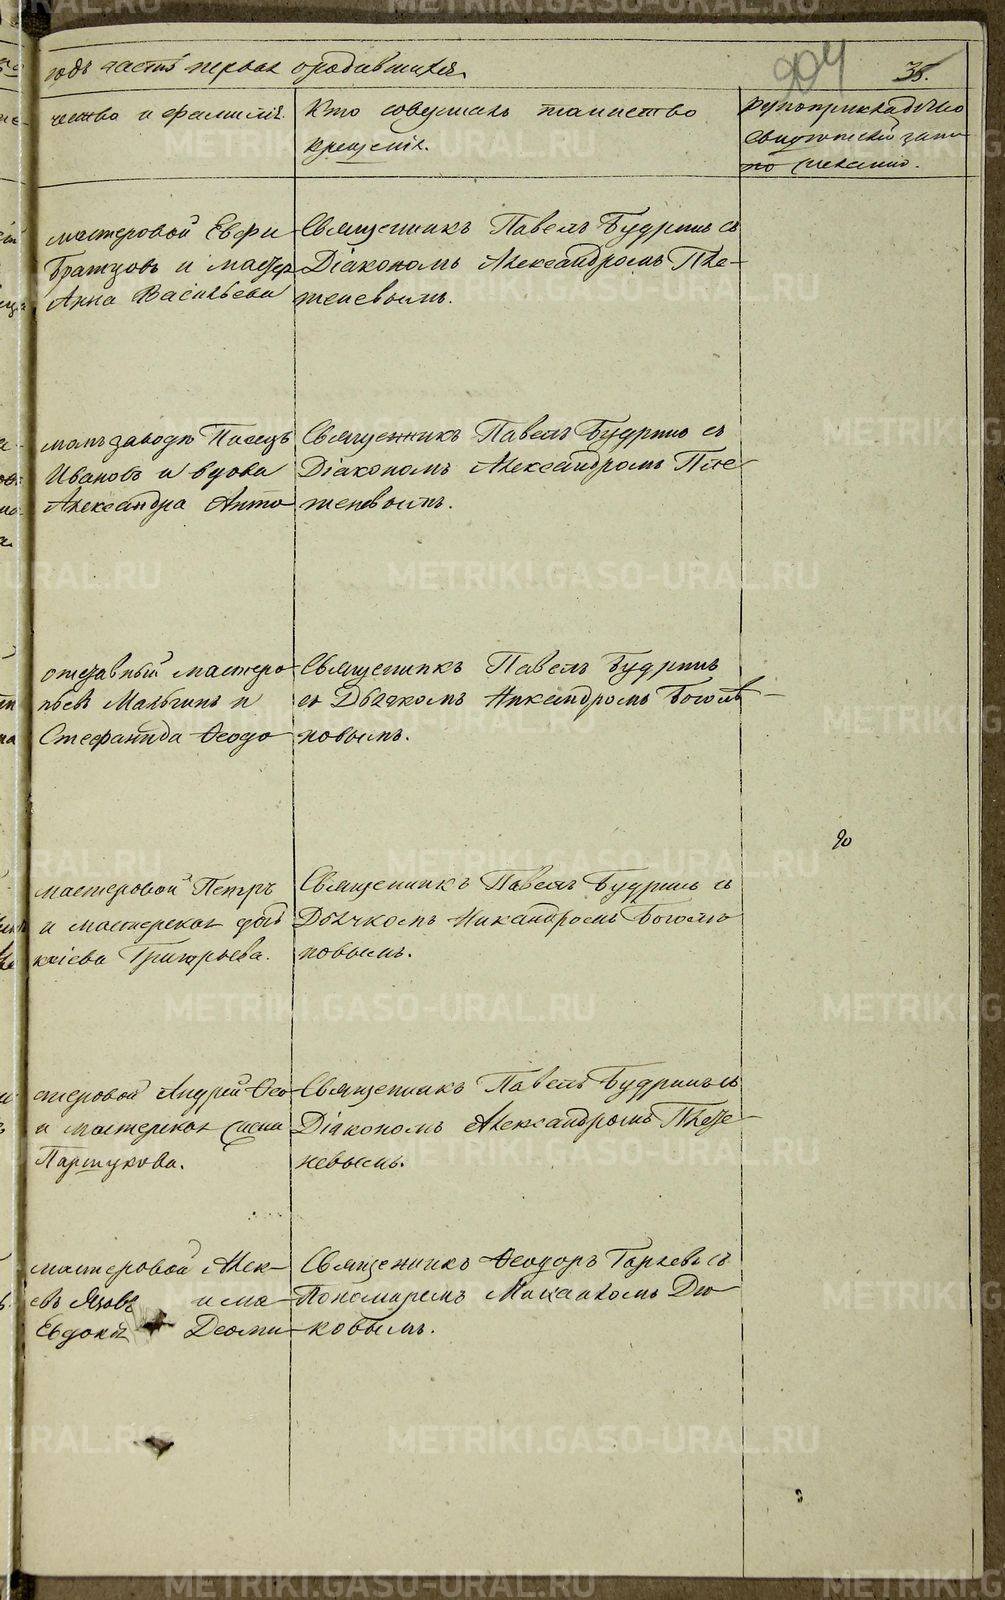 годъ часть первая о родившихся
904
35.
чество и фамилія.
Кто совершалъ таинство
крещенія.
Рукоприкладство
свидѣтелей запи
си по желанію.
мастеровой Евфи
Братцовъ и мастер
Анна Васильева
Священникъ Павелъ Будринъ съ
Діакономъ Александромъ Пле-
теневымъ.
завода
Ивановъ и вдова
Александра Анто
Священникъ Павелъ Будринъ съ
Діакономъ Александромъ Пле
теневымъ.
отставный мастеро
Мальгинъ и
Стефанида Ѳеодо
Священникъ Павелъ Будринъ
съ Дьячкомъ Никандромъ Боголѣ
повымъ.
мастеровой Петръ
и мастерская
Григорьева.
Священникъ Павелъ Будринъ съ
Дьячкомъ Никандромъ Боголѣ
повымъ.
стеровой Андрей Ѳео
и мастерская
Партукова.
Священникъ Павелъ Будринъ съ
Діакономъ Александромъ Плете
невымъ.
мастеровой Алек-
евъ и ма
Евдокія Деоми
Священникъ Ѳеодоръ съ
Пономаремъ Михаиломъ Дю
ковымъ.
METRIKI.GASO-URAL.RU